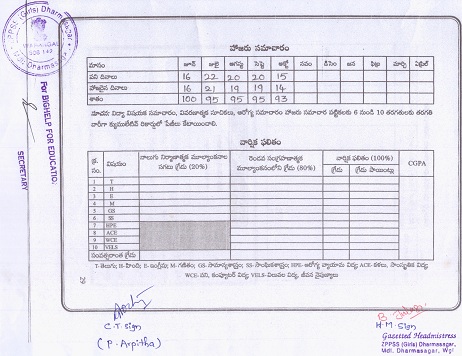 ZPPSS (Girls) Dharmasagar
WARANGAL
506 142
Mdl. Dharmasagar
For BIGHELP FOR EDUCATION
SECRETARY
హాజరు సమాచారం
మాసం జూన్ జులై ఆగష్టు సెప్టె అక్టో నవం డిసెం జన ఫిబ్ర మార్చి ఏప్రిల్
పని దినాలు 16 22 20 20 15
హాజరైన దినాలు 16 21 19 19 14
శాతం 100 95 95 95 93
సూచన: విద్యా విషయక సమాచారం, వివరణాత్మక సూచికలు, ఆరోగ్య సమాచారం హాజరు సమాచార పట్టికలకు 6 నుండి 10 తరగతులకు తరగతి
వారీగా క్యుములేటివ్ రికార్డులో పేజీలు కేటాయించాలి.
వార్షిక ఫలితం
క్ర. సం. విషయం నాలుగు నిర్మాణాత్మక మూల్యాంకనాల సగటు గ్రేడు (20%) రెండవ సంగ్రహణాత్మక మూల్యాంకనంలోని గ్రేడు (80%) వార్షిక ఫలితం (100%) CGPA
గ్రేడు గ్రేడు పాయింట్లు
1 T
2 H
3 E
4 M
5 GS
6 SS
7 HPE
8 ACE
9 WCE
10 VELS
సంవత్సరాంత గ్రేడు
T-తెలుగు; H-హిందీ; E-ఇంగ్లీషు; M-గణితం; GS-సామాన్యశాస్త్రం; SS-సాంఘికశాస్త్రం; HPE-ఆరోగ్య వ్యాయామ విద్య; ACE-కళలు, సాంస్కృతిక విద్య;
WCE-పని, కంప్యూటర్ విద్య; VELS-విలువల విద్య, జీవన నైపుణ్యాలు
29
C.T. Sign
(P. Arpitha)
H.M. Sign
Gazetted Headmistress
ZPPSS (Girls) Dharmasagar,
Mdl. Dharmasagar, Wgl